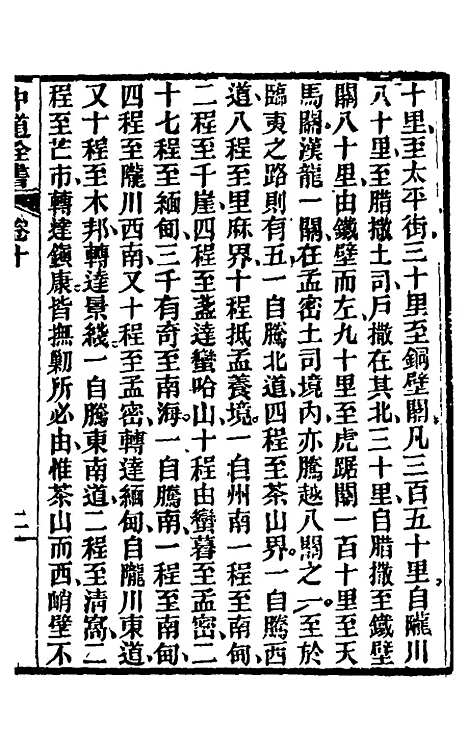 十里至太平街三十里至銅壁關凡三百五十里自隴川
八十里至腊撒土司戶撒在其北三十里自腊撒至鐵壁
關八十里由鐵壁而左九十里至虎踞關一百十里至天
馬關漢龍一關在孟密土司境內亦騰越八關之一至於
臨夷之路則有五一自騰北道四程至茶山界一自騰西
道八程至里麻界十程抵孟養境一自州南一程至南甸
二程至干崖四程至盞達蠻哈山十程由蠻暮至孟密二
十七程至緬甸三千有奇至南海一自騰南一程至南甸
四程至隴川西南又十程至孟密轉達緬甸自隴川東道
又十程至木邦轉達景綫一自騰東南道二程至清窩二
程至芒市轉達鎮康皆撫剿所必由惟茶山而西峭壁不
中道全書
卷十
二